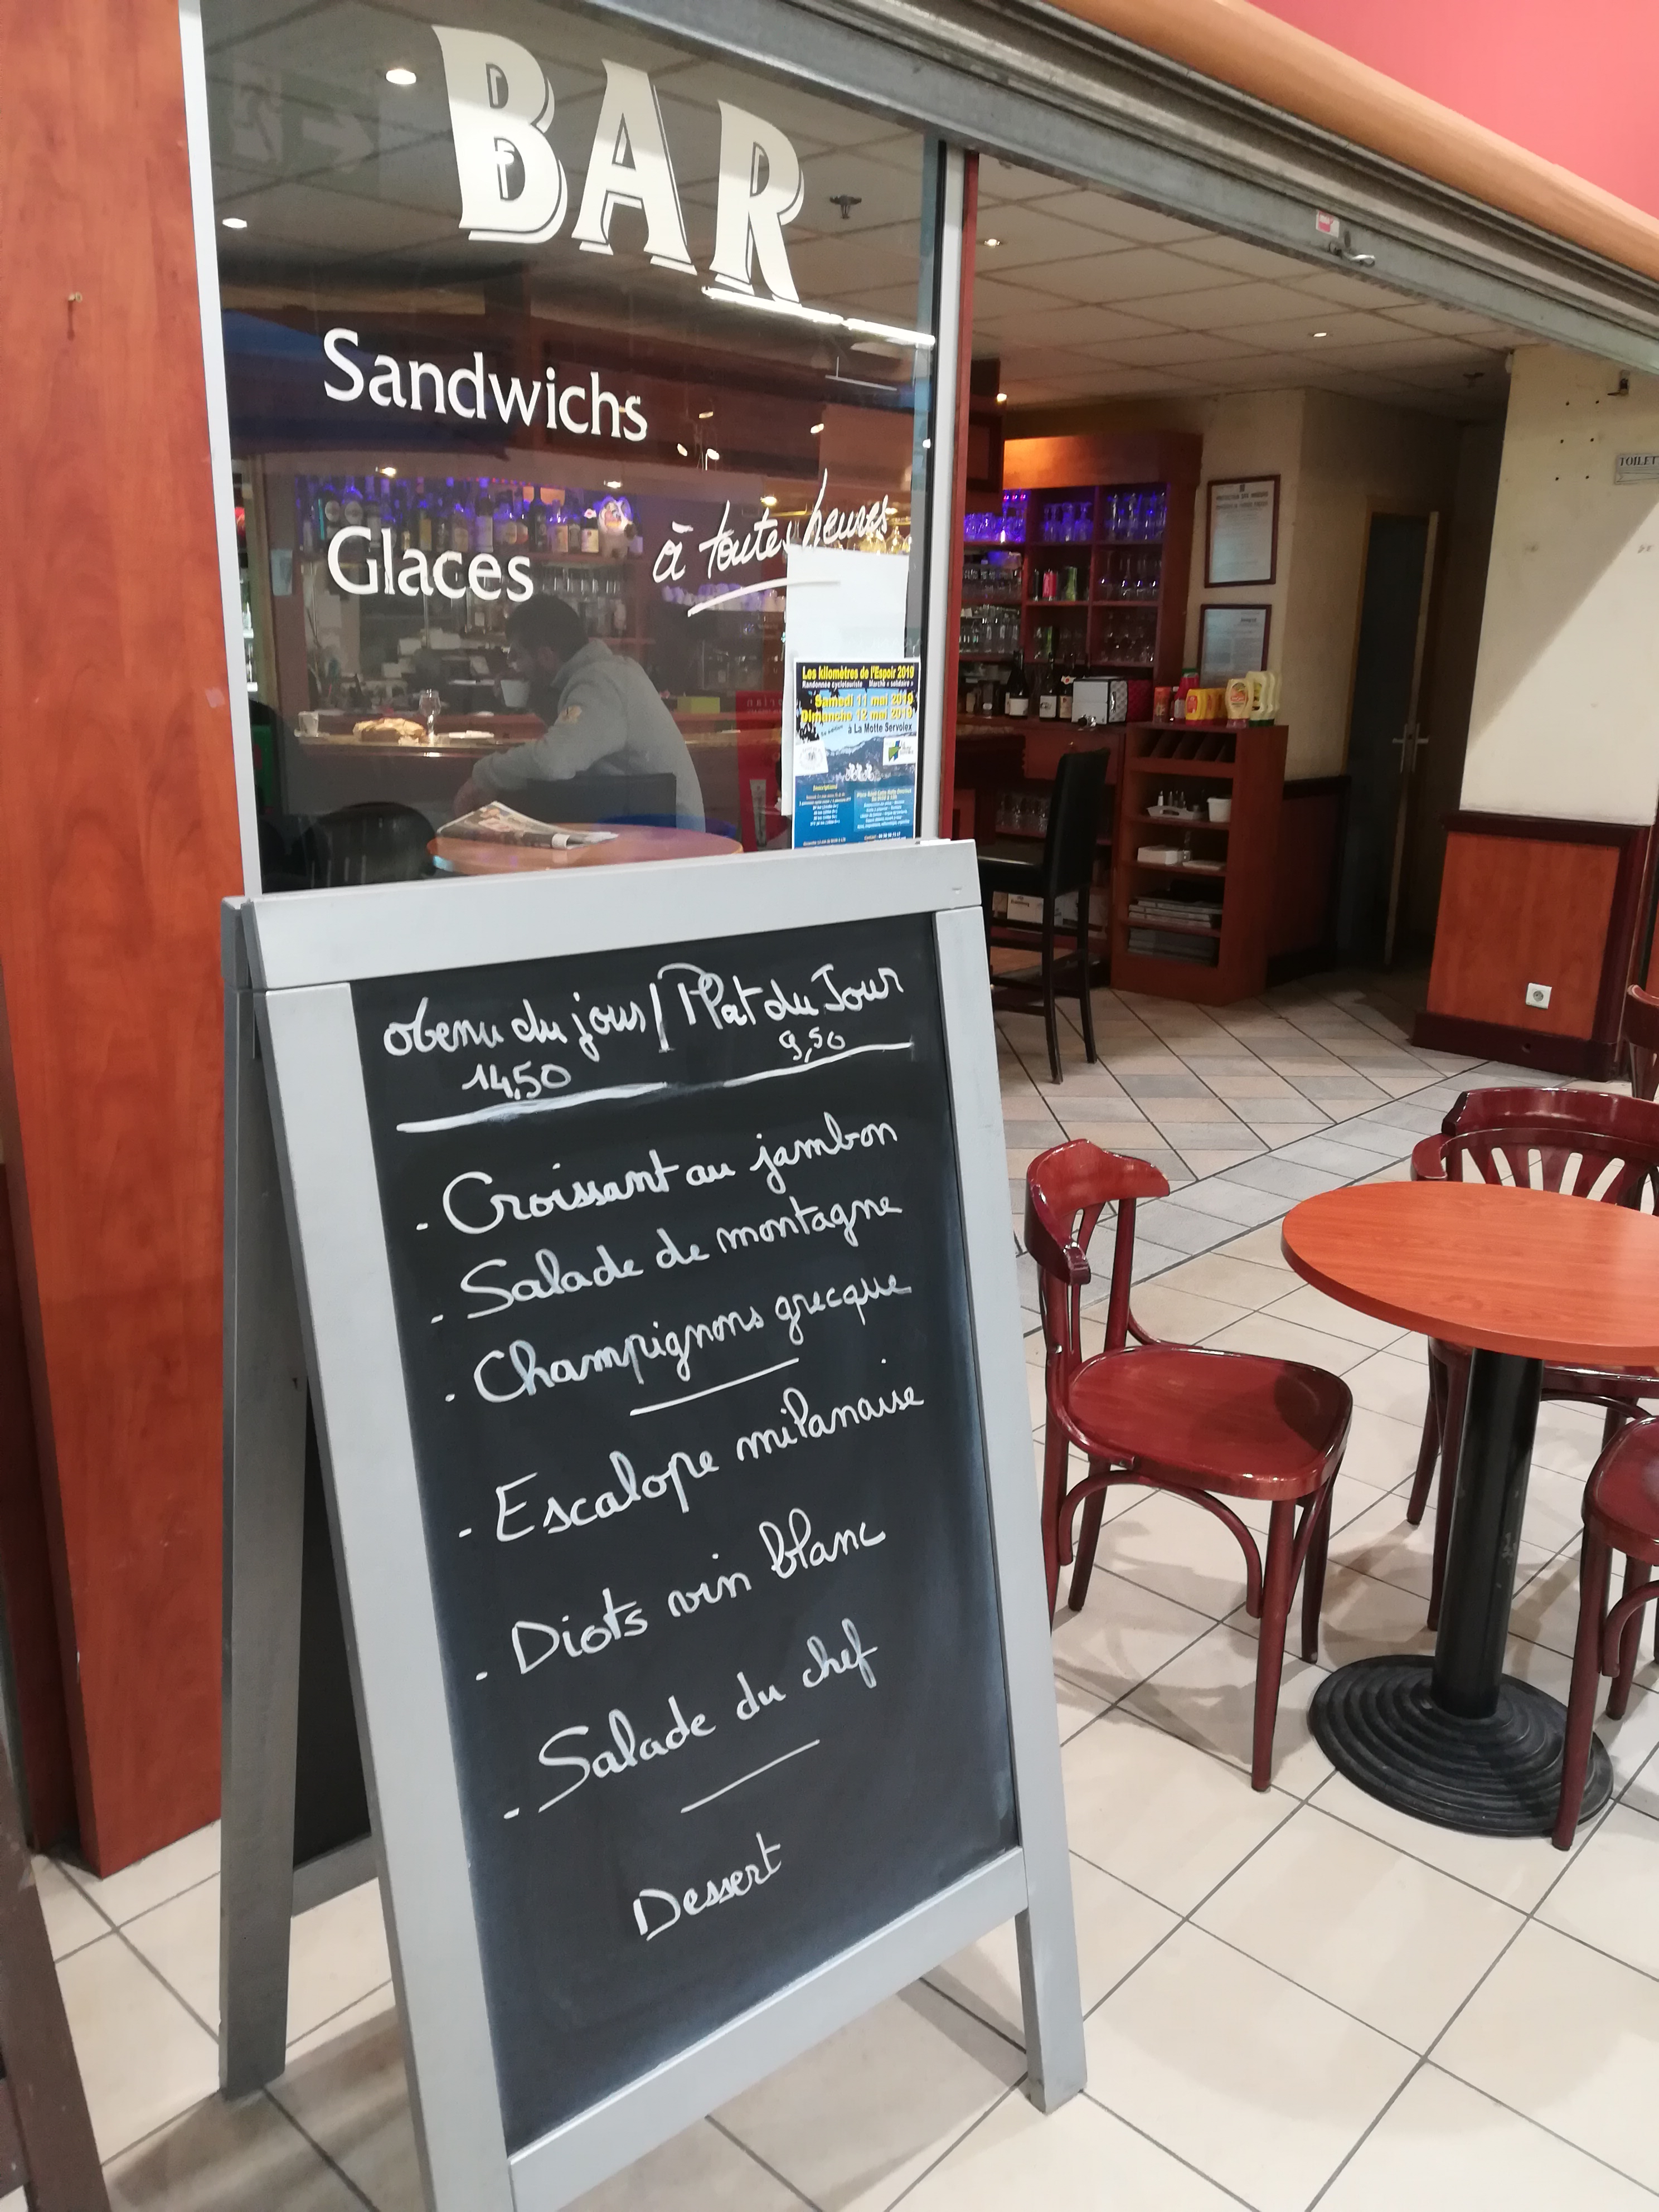 BAR
Sandwichs
Glaces
à toutes heures
Les kilomètres de l'Espoir 2019
Randonnée cyclotouriste Marche « solidaire »
Samedi 11 mai 2019
Dimanche 12 mai 2019
à La Motte Servolex
TOILET
Menu du jour / Plat du Jour
14,50 9,50
- Croissant au jambon
- Salade de montagne
- Champignons grecque
- Escalope milanaise
- Diots vin blanc
- Salade du chef
Dessert